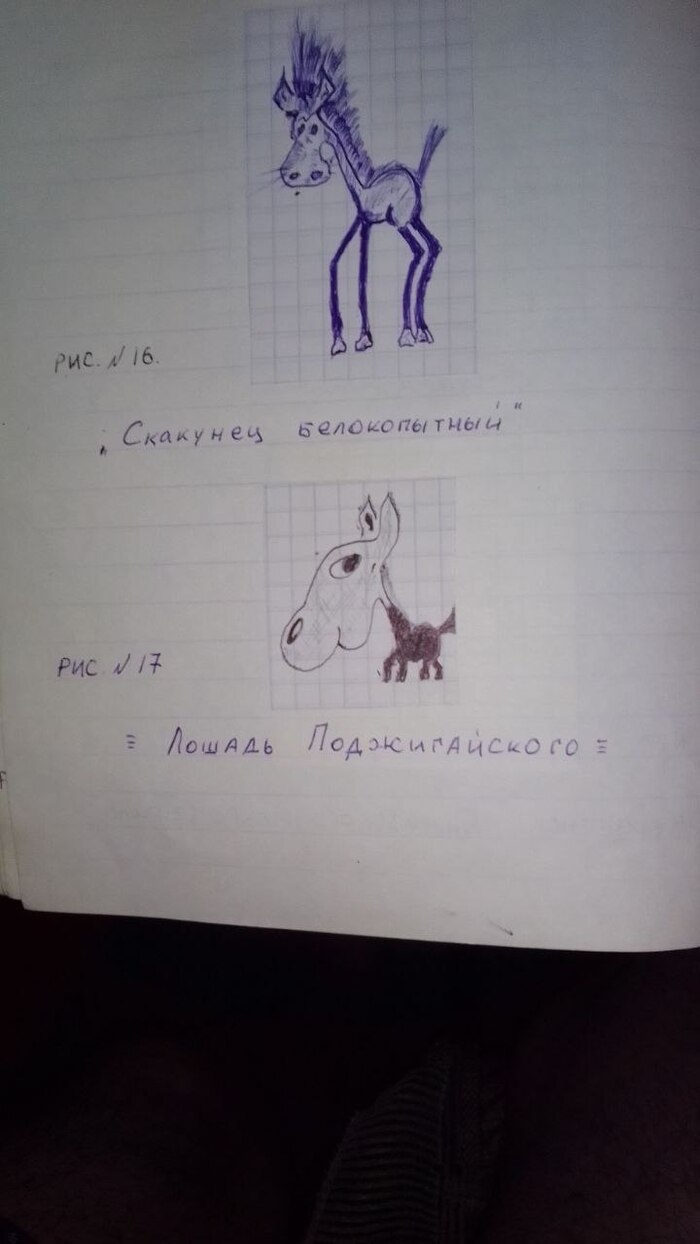 Рис. N 16.
„Скакунец белокопытный"
Рис N 17
≡ Лошадь Поджигайского ≡